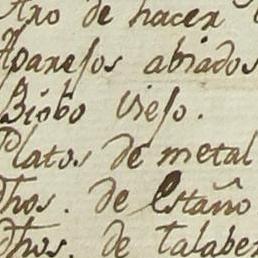 Aro de hacer
Aparejos abiados
Biobo Viejo.
Platos de metal
Dhos. de Estaño
Dhos. de talaber